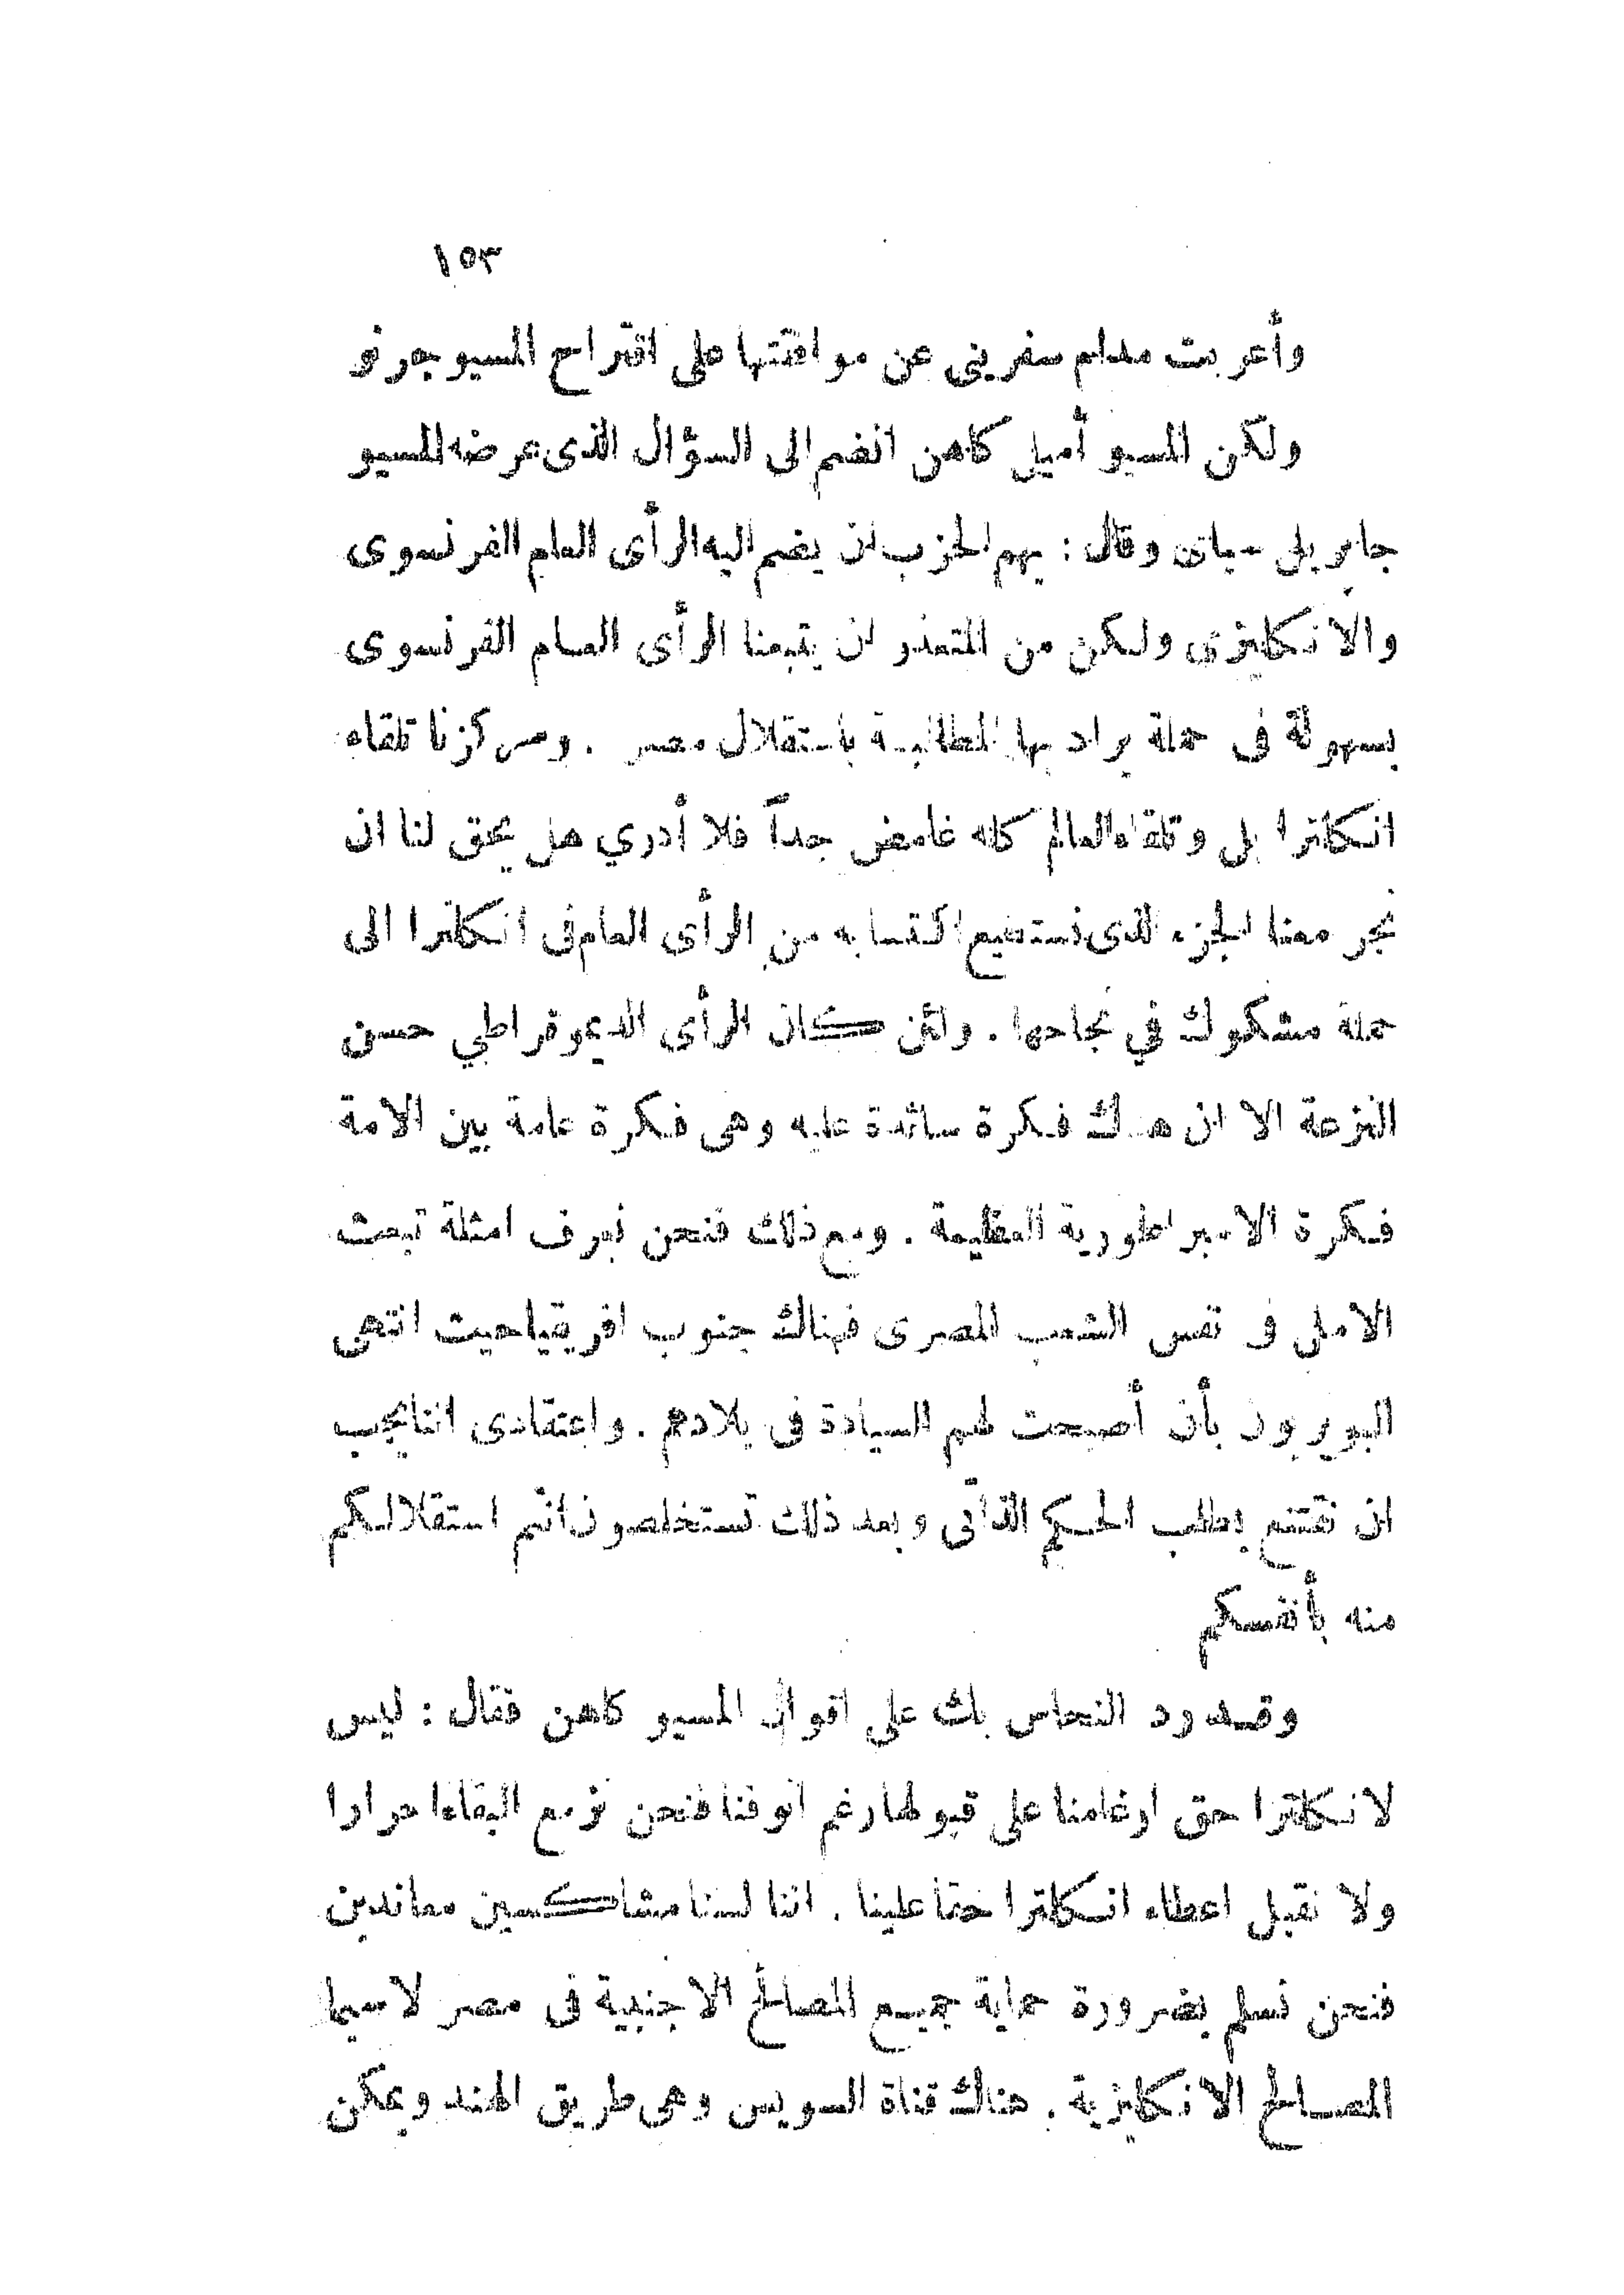 ١٥٣
وأعربت مدام سفرينى عن موافقتها على اقتراح المسيو جرنو
ولكن المسيو أميل كاهن انضم الى السؤال الذى عرضه المسيو
جابريلى وقال : يهم الحزب ان يضم اليه الرأى العام الفرنسوى
والانكليزى ولكن من المتعذر ان يتبعنا الرأى العام الفرنسوى
بسهولة فى حملة يراد بها المطالبة باستقلال مصر . ومركزنا تلقاه
انكلترا بل وتلقاه العالم كله غامض جداً فلا أدري هل يحق لنا ان
نجر معنا الجزء الذى نستطيع اكتسابه من الرأى العام فى انكلترا الى
حملة مشكوك في نجاحها . ولئن كان الرأى الديموقراطي حسن
النزعة الا ان هناك فكرة سائدة عليه وهى فكرة عامة بين الامة
فكرة الامبراطورية العظيمة . ومع ذلك فنحن نعرف امثلة تبعث
الامل فى نفس الشعب المصرى فهناك جنوب افريقيا حيث انتهى
البويريون بأن أصبحت لهم السيادة فى بلادهم . واعتقادى اننا يجب
ان نقتنع بطلب الحكم الذاتى وبعد ذلك تستخلصون انتم استقلالكم
منه بأنفسكم
وقد رد النحاس بك على اقوال المسيو كاهن فقال : ليس
لانكلترا حق ارغامنا على قبولها رغم انوفنا فنحن نزمع البقاء احرارا
ولا نقبل اعطاء انكلترا حقا علينا . اننا لسنا مشاكسين معاندين
فنحن نسلم بضرورة حماية جميع المصالح الاجنبية فى مصر لاسيما
المصالح الانكليزية . هناك قناة السويس وهى طريق الهند ويمكن